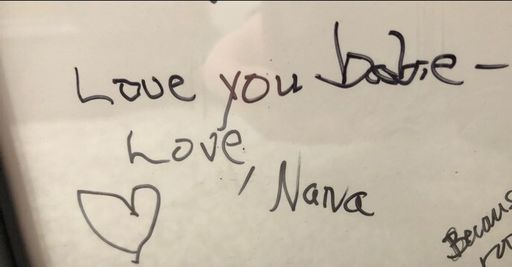 Love you babie -
Love, Nana
Becaus